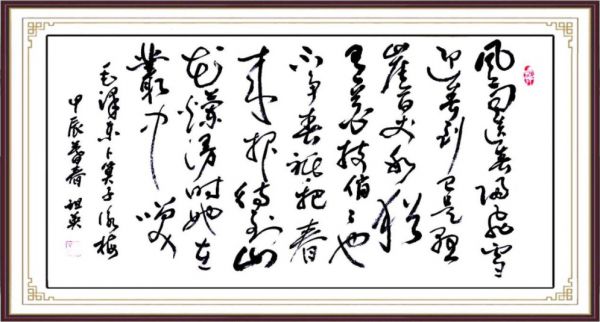 風雨送春歸飛雪
迎春到已是懸
崖百丈冰猶
有花枝俏俏也
不争春祇把春
来报待到山
花爛漫时她在
叢中笑
毛泽东卜算子詠梅
甲辰春